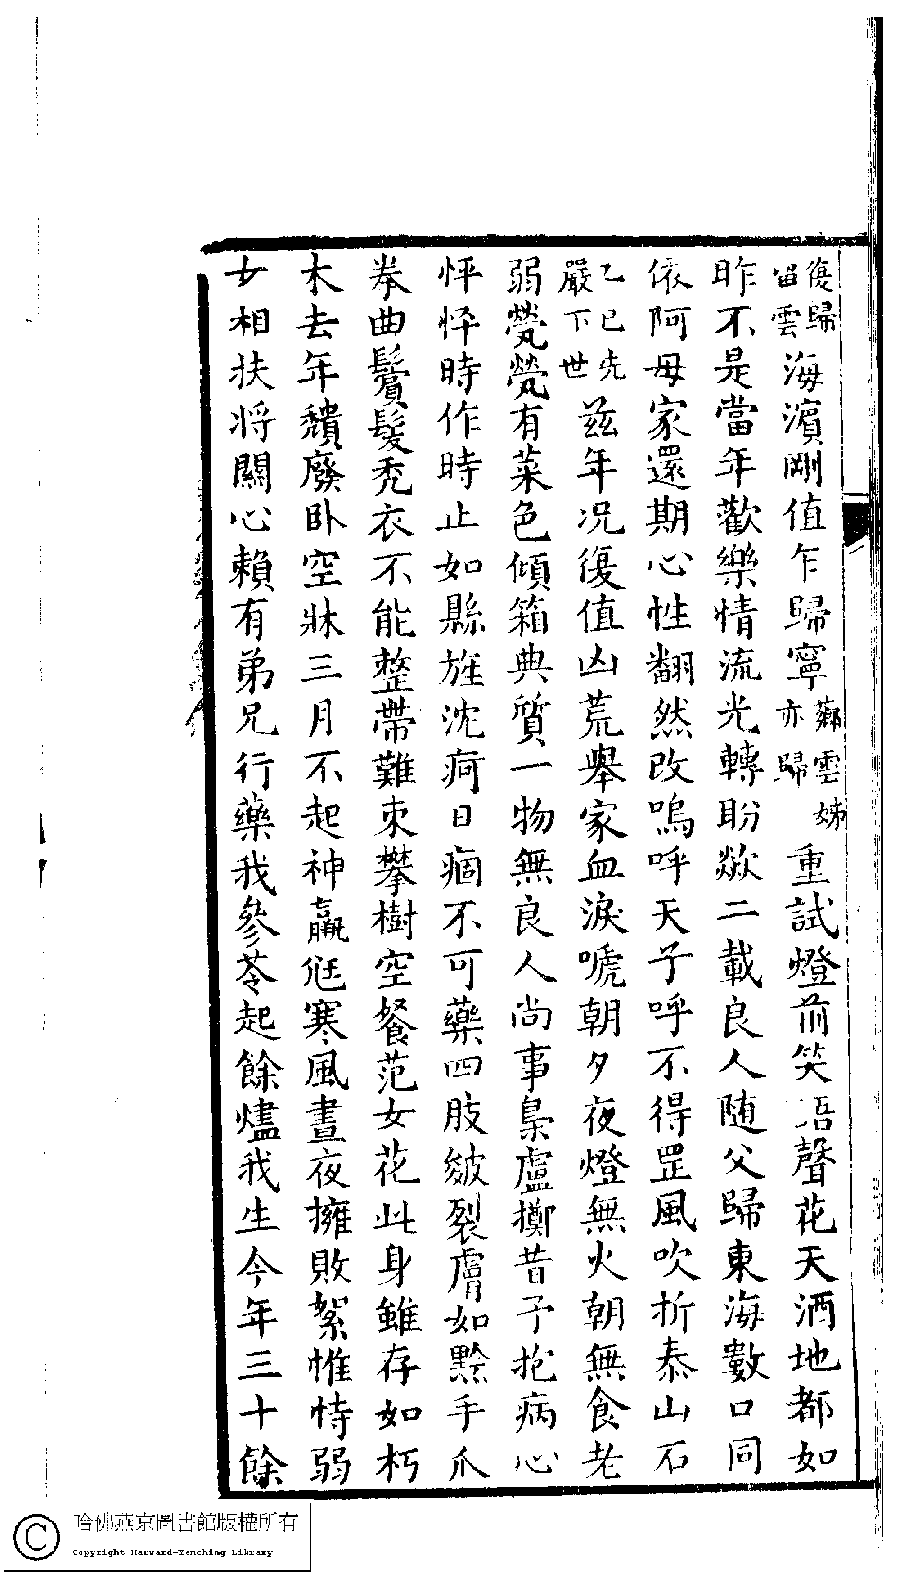 復歸留雲海濵剛值乍歸寧鄰雲姊亦歸重試燈前笑語聲花天酒地都如
昨不是當年歡樂情流光轉盼欻二載良人随父歸東海數口同
依阿母家還期心性翻然改嗚呼天子呼不得罡風吹折泰山石
乙巳先嚴下世兹年况復值凶荒舉家血淚唬朝夕夜燈無火朝無食老
弱煢煢有菜色傾箱典質一物無良人尚事梟盧擲昔予抱病心
怦怦時作時止如縣旌沈疴日痼不可藥四肢皴裂膚如黥手爪
拳曲鬢髮禿衣不能整帶難束攀樹空餐范女花此身雖存如朽
木去年纇廢卧空牀三月不起神羸尪寒風晝夜擁敗絮惟恃弱
女相扶將關心賴有弟兄行藥我參苓起餘燼我生今年三十餘
哈佛燕京圖書館版權所有
Copyright Harvard-Yenching Library